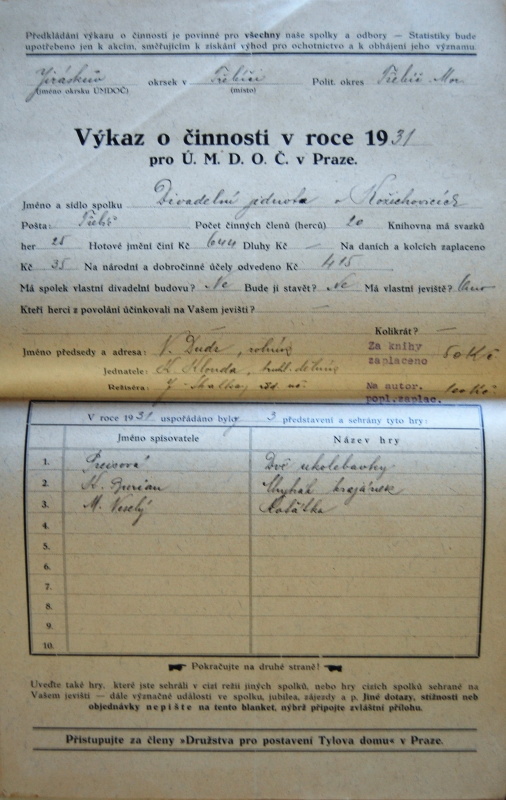 Předkládání výkazu o činnosti je povinné pro všechny naše spolky a odbory — Statistiky bude
upotřebeno jen k akcím, směřujícím k získání výhod pro ochotnictvo a k obhájení jeho významu.
Jiráskův okrsek v Třebíči Polit. okres Třebíč Mor.
(jméno okrsku ÚMDOČ) (místo)
Výkaz o činnosti v roce 1931
pro Ú. M. D. O. Č. v Praze.
Jméno a sídlo spolku Divadelní jednota v Kožichovicích
Pošta: Třebíč Počet činných členů (herců) 20 Knihovna má svazků
her 25 Hotové jmění činí Kč 644 Dluhy Kč —
Na daních a kolcích zaplaceno
Kč 35 Na národní a dobročinné účely odvedeno Kč 415
Má spolek vlastní divadelní budovu? Ne Bude ji stavět? Ne Má vlastní jeviště? Ano
Kteří herci z povolání účinkovali na Vašem jevišti? —
Kolikrát? —
Jméno předsedy a adresa: V. Dúdr, rolník
Za knihy
zaplaceno 50 Kč
Jednatele: Klouda,
Režiséra: J. Skalka,
Na autor.
popl. zaplac. 100 Kč
V roce 1931 uspořádáno bylo 3 představení a sehrány tyto hry:
Jméno spisovatele Název hry
1. Preisová Dvě ukolébavky
2. Berian krajánek
3. M. Veselý Kobylka
4.
5.
6.
7.
8.
9.
10.
Pokračujte na druhé straně!
Uveďte také hry, které jste sehráli v cizí režii jiných spolků, nebo hry cizích spolků sehrané na
Vašem jevišti — dále význačné události ve spolku, jubilea, zájezdy a p. Jiné dotazy, stížnosti neb
objednávky nepište na tento blanket, nýbrž připojte zvláštní přílohu.
Přistupujte za členy »Družstva pro postavení Tylova domu« v Praze.